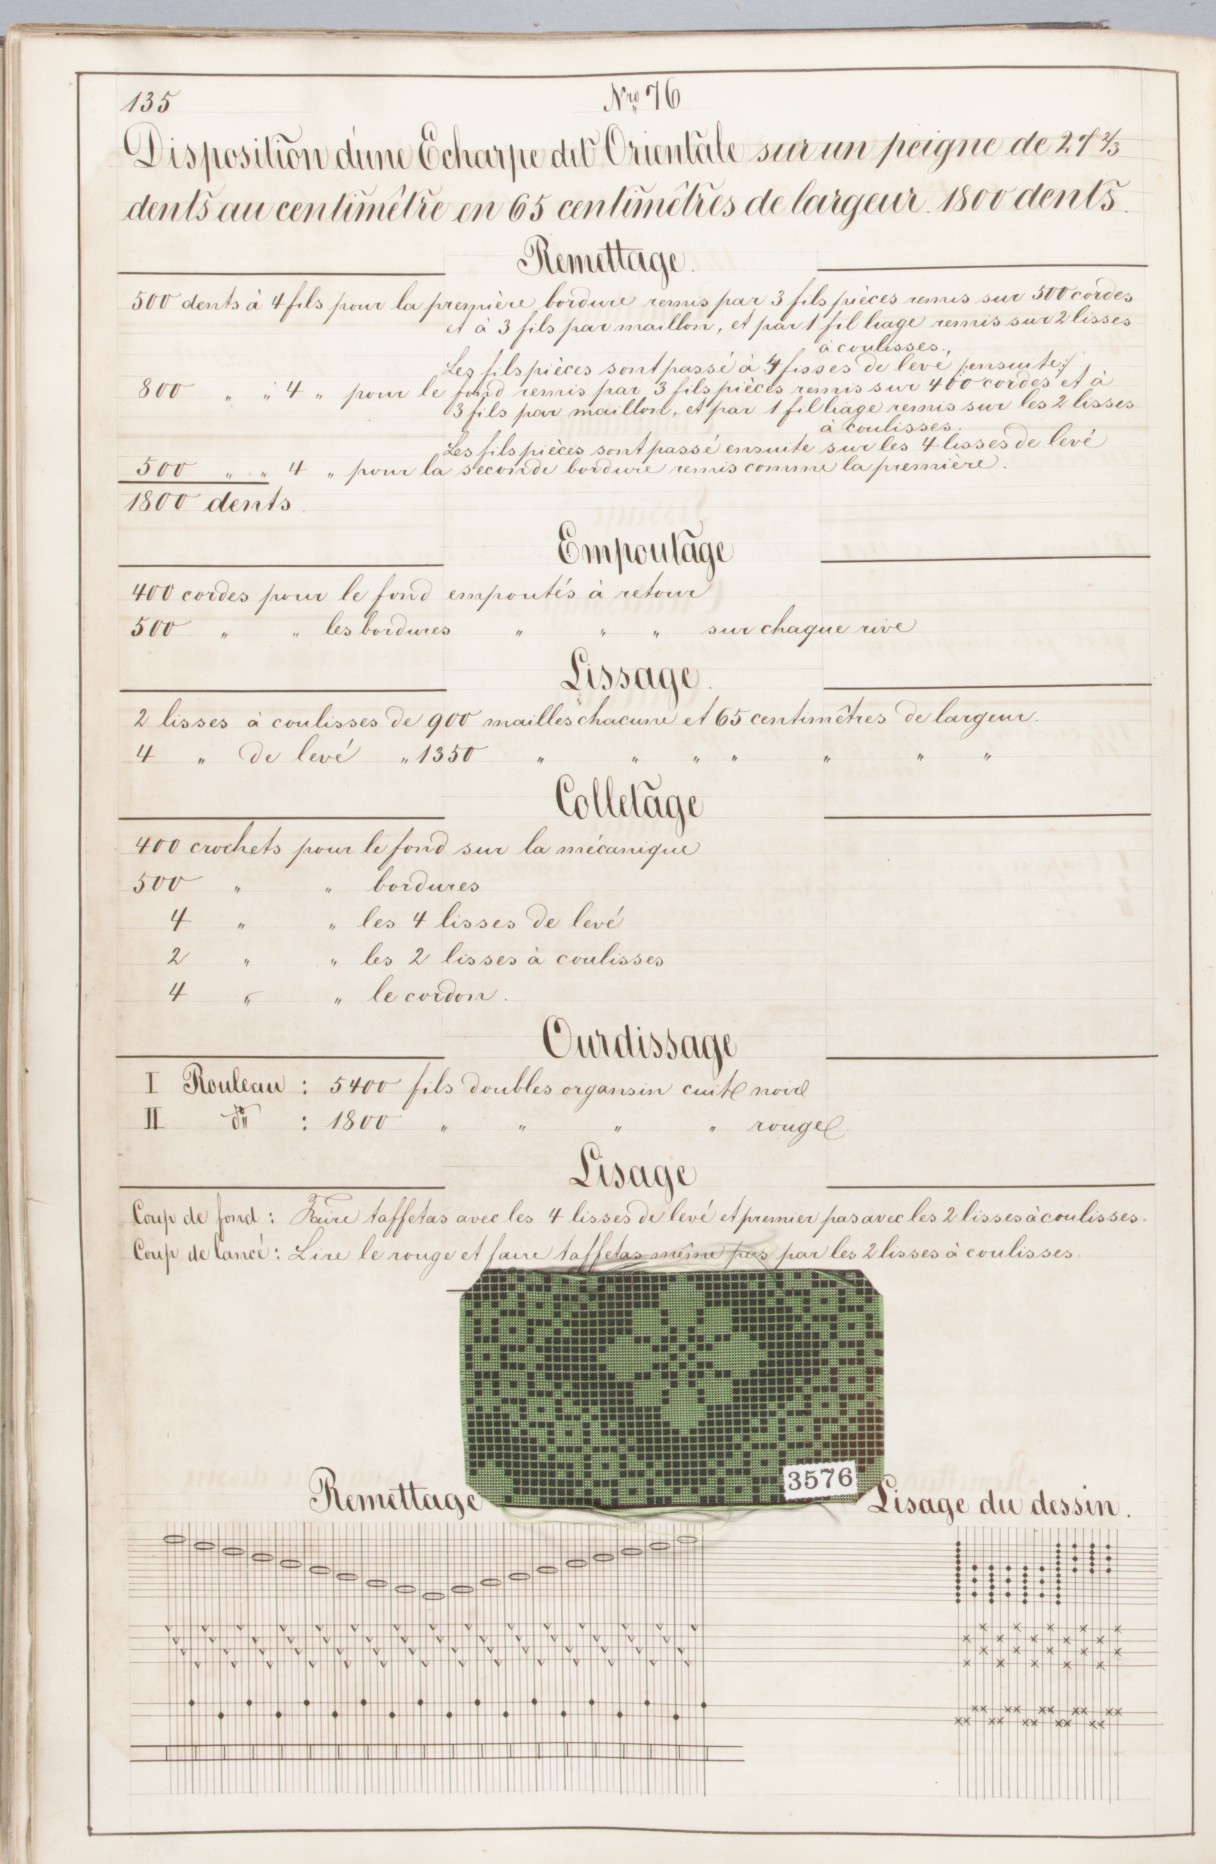 135
Nro 76
Disposition d'une Echarpe dit Orientale sur un peigne de 27 2/3
dents au centimêtre en 65 centimêtres de largeur. 1800 dents.
Remettage.
500 dents à 4 fils pour la première bordure remis par 3 fils pièces remis sur 500 cordes
et à 3 fils par maillon, et par 1 fil liage remis sur 2 lisses
à coulisses.
Les fils pièces sont passé à 4 lisses de levé ensuite
800 " " 4 " pour le fond remis par 3 fils pièces remis sur 400 cordes et à
3 fils par maillon, et par 1 fil liage remis sur les 2 lisses
à coulisses.
Les fils pièces sont passé ensuite sur les 4 lisses de levé
500 " " 4 " pour la seconde bordure remis comme la première.
1800 dents.
Empoutage
400 cordes pour le fond empoutés à retour
500 " " les bordures " " " sur chaque rive
Lissage.
2 lisses à coulisses de 900 mailles chacune et 65 centimêtres de largeur.
4 " de levé " 1350 " " " " " " "
Colletage
400 crochets pour le fond sur la mécanique
500 " " bordures
4 " " les 4 lisses de levé
2 " " les 2 lisses à coulisses
4 " " le cordon.
Ourdissage
I Rouleau : 5400 fils doubles organsin cuit noir
II dto : 1800 " " " " rouge.
Lisage
Coup de fond : Faire taffetas avec les 4 lisses de levé et premier pas avec les 2 lisses à coulisses.
Coup de lancé : Lire le rouge et faire taffetas même pas par les 2 lisses à coulisses.
3576
Remettage
Lisage du dessin.